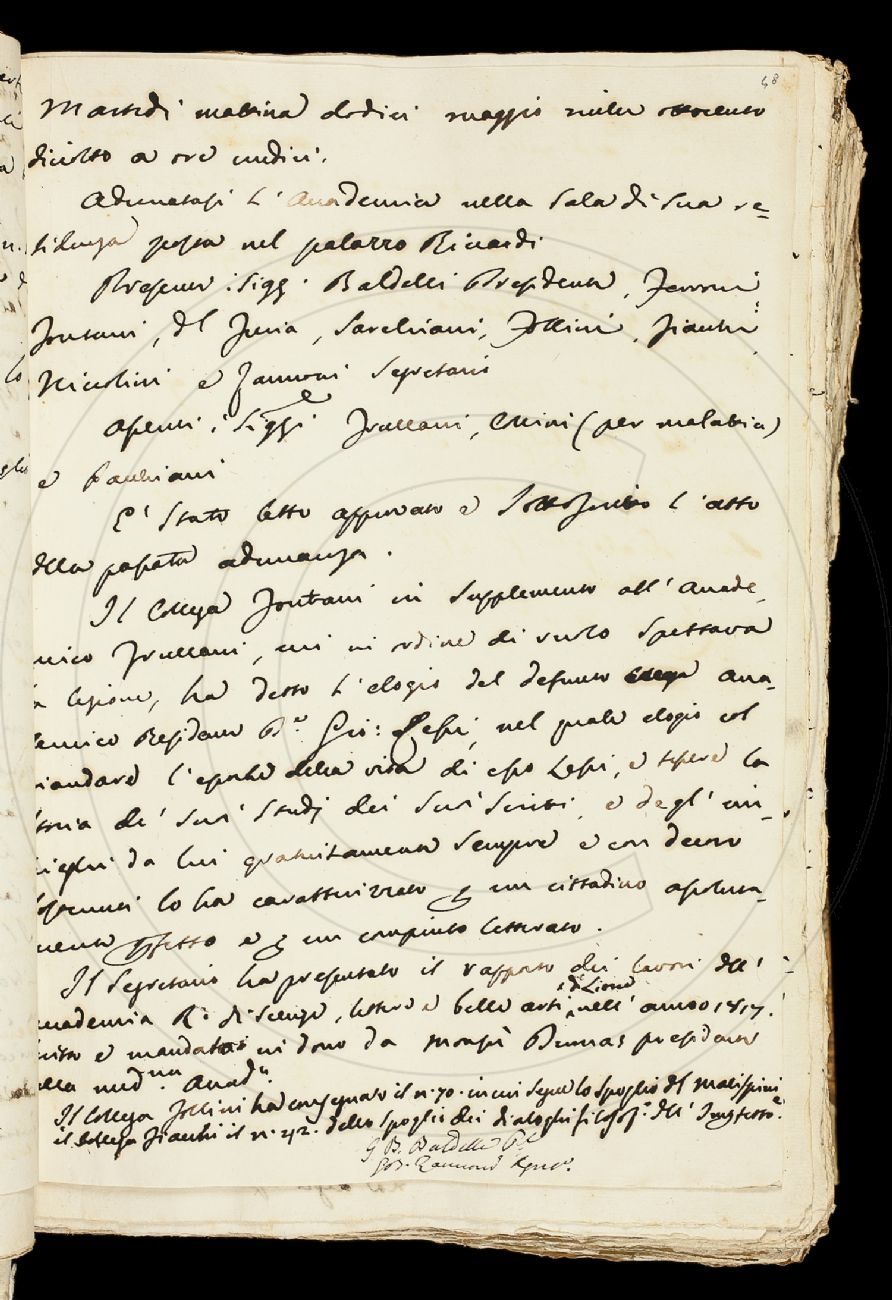 48
Martedì mattina dodici maggio mille ottocento
diciotto a ore undici.
Adunatasi l'Accademia nella Sala di Sua re=
sidenza posta nel palazzo Riccardi
Presenti i Sigg.i Baldelli Presidente, Ferroni
Fontani, Del Furia, Sarchiani, Follini, Fiacchi
Niccolini e Zannoni Segretario
Assenti i Siggi Frullani, Collini (per malattia)
e Pauliani
E' Stato letto approvato e Sottoscritto l'atto
della passata adunanza.
Il Collega Fontani in Supplemento all'Accade=
mico Frullani, cui in ordine di ruolo Spettava
la lezione, ha detto l'elogio del defunto acca=
demico Residente Gio: Lessi, nel quale elogio col
l'epoche della vita di esso Lessi, e tessere la
Storia de' Suoi Studj dei Suoi Scritti, e degl'im=
pieghi da lui gratuitamente Sempre e con decoro
Sostenuti lo ha caratterizzato p un cittadino assoluta=
mente pfetto e p un compiuto letterato.
Il Segretario ha presentato il rapporto dei lavori dell'
accademia R. di Scienze, lettere e belle arti di Lione nell'anno 1817.
e mandato in dono da Dumas presidente
della med.ma Accad.a
Il Collega Follini ha consegnato il n. 70. in cui Segue lo Spoglio del Malispini
il Collega Fiacchi il n. 212. dello Spoglio dei dialoghi filosof. dell'
G. B. Baldelli
G. B. Zannoni Segret.o